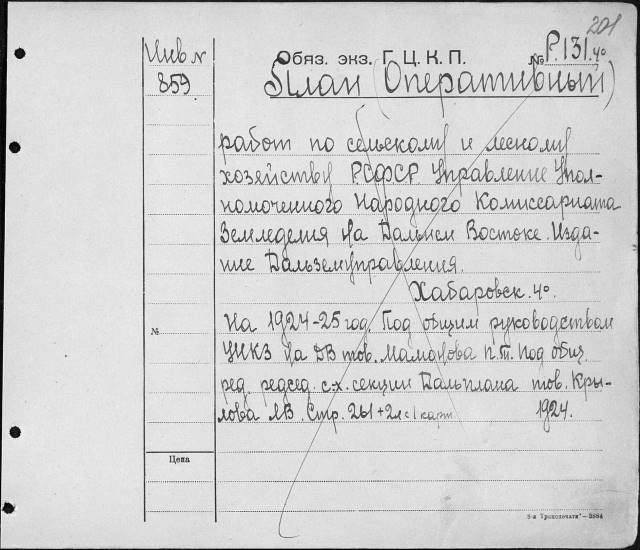 201
Инв №
859
Обяз. экз. Г. Ц. К. П.
№ Р.131.4°
План (Оперативный)
работ по сельскому и лесному
хозяйству Р.С.Ф.С.Р. Управление Упол-
номоченного Народного Комиссариата
Земледелия на Дальнем Востоке. Изда-
ние Дальземуправления.
Хабаровск. 4°.
На 1924-25 год. Под общим руководством
№
на ДВ тов. Мамонова П.П. Под общ.
ред. председ. с.-х. секции Дальплана тов. Кры-
лова Стр. 261 + 2 л с 1 карт 1924.
Цена
"-3884